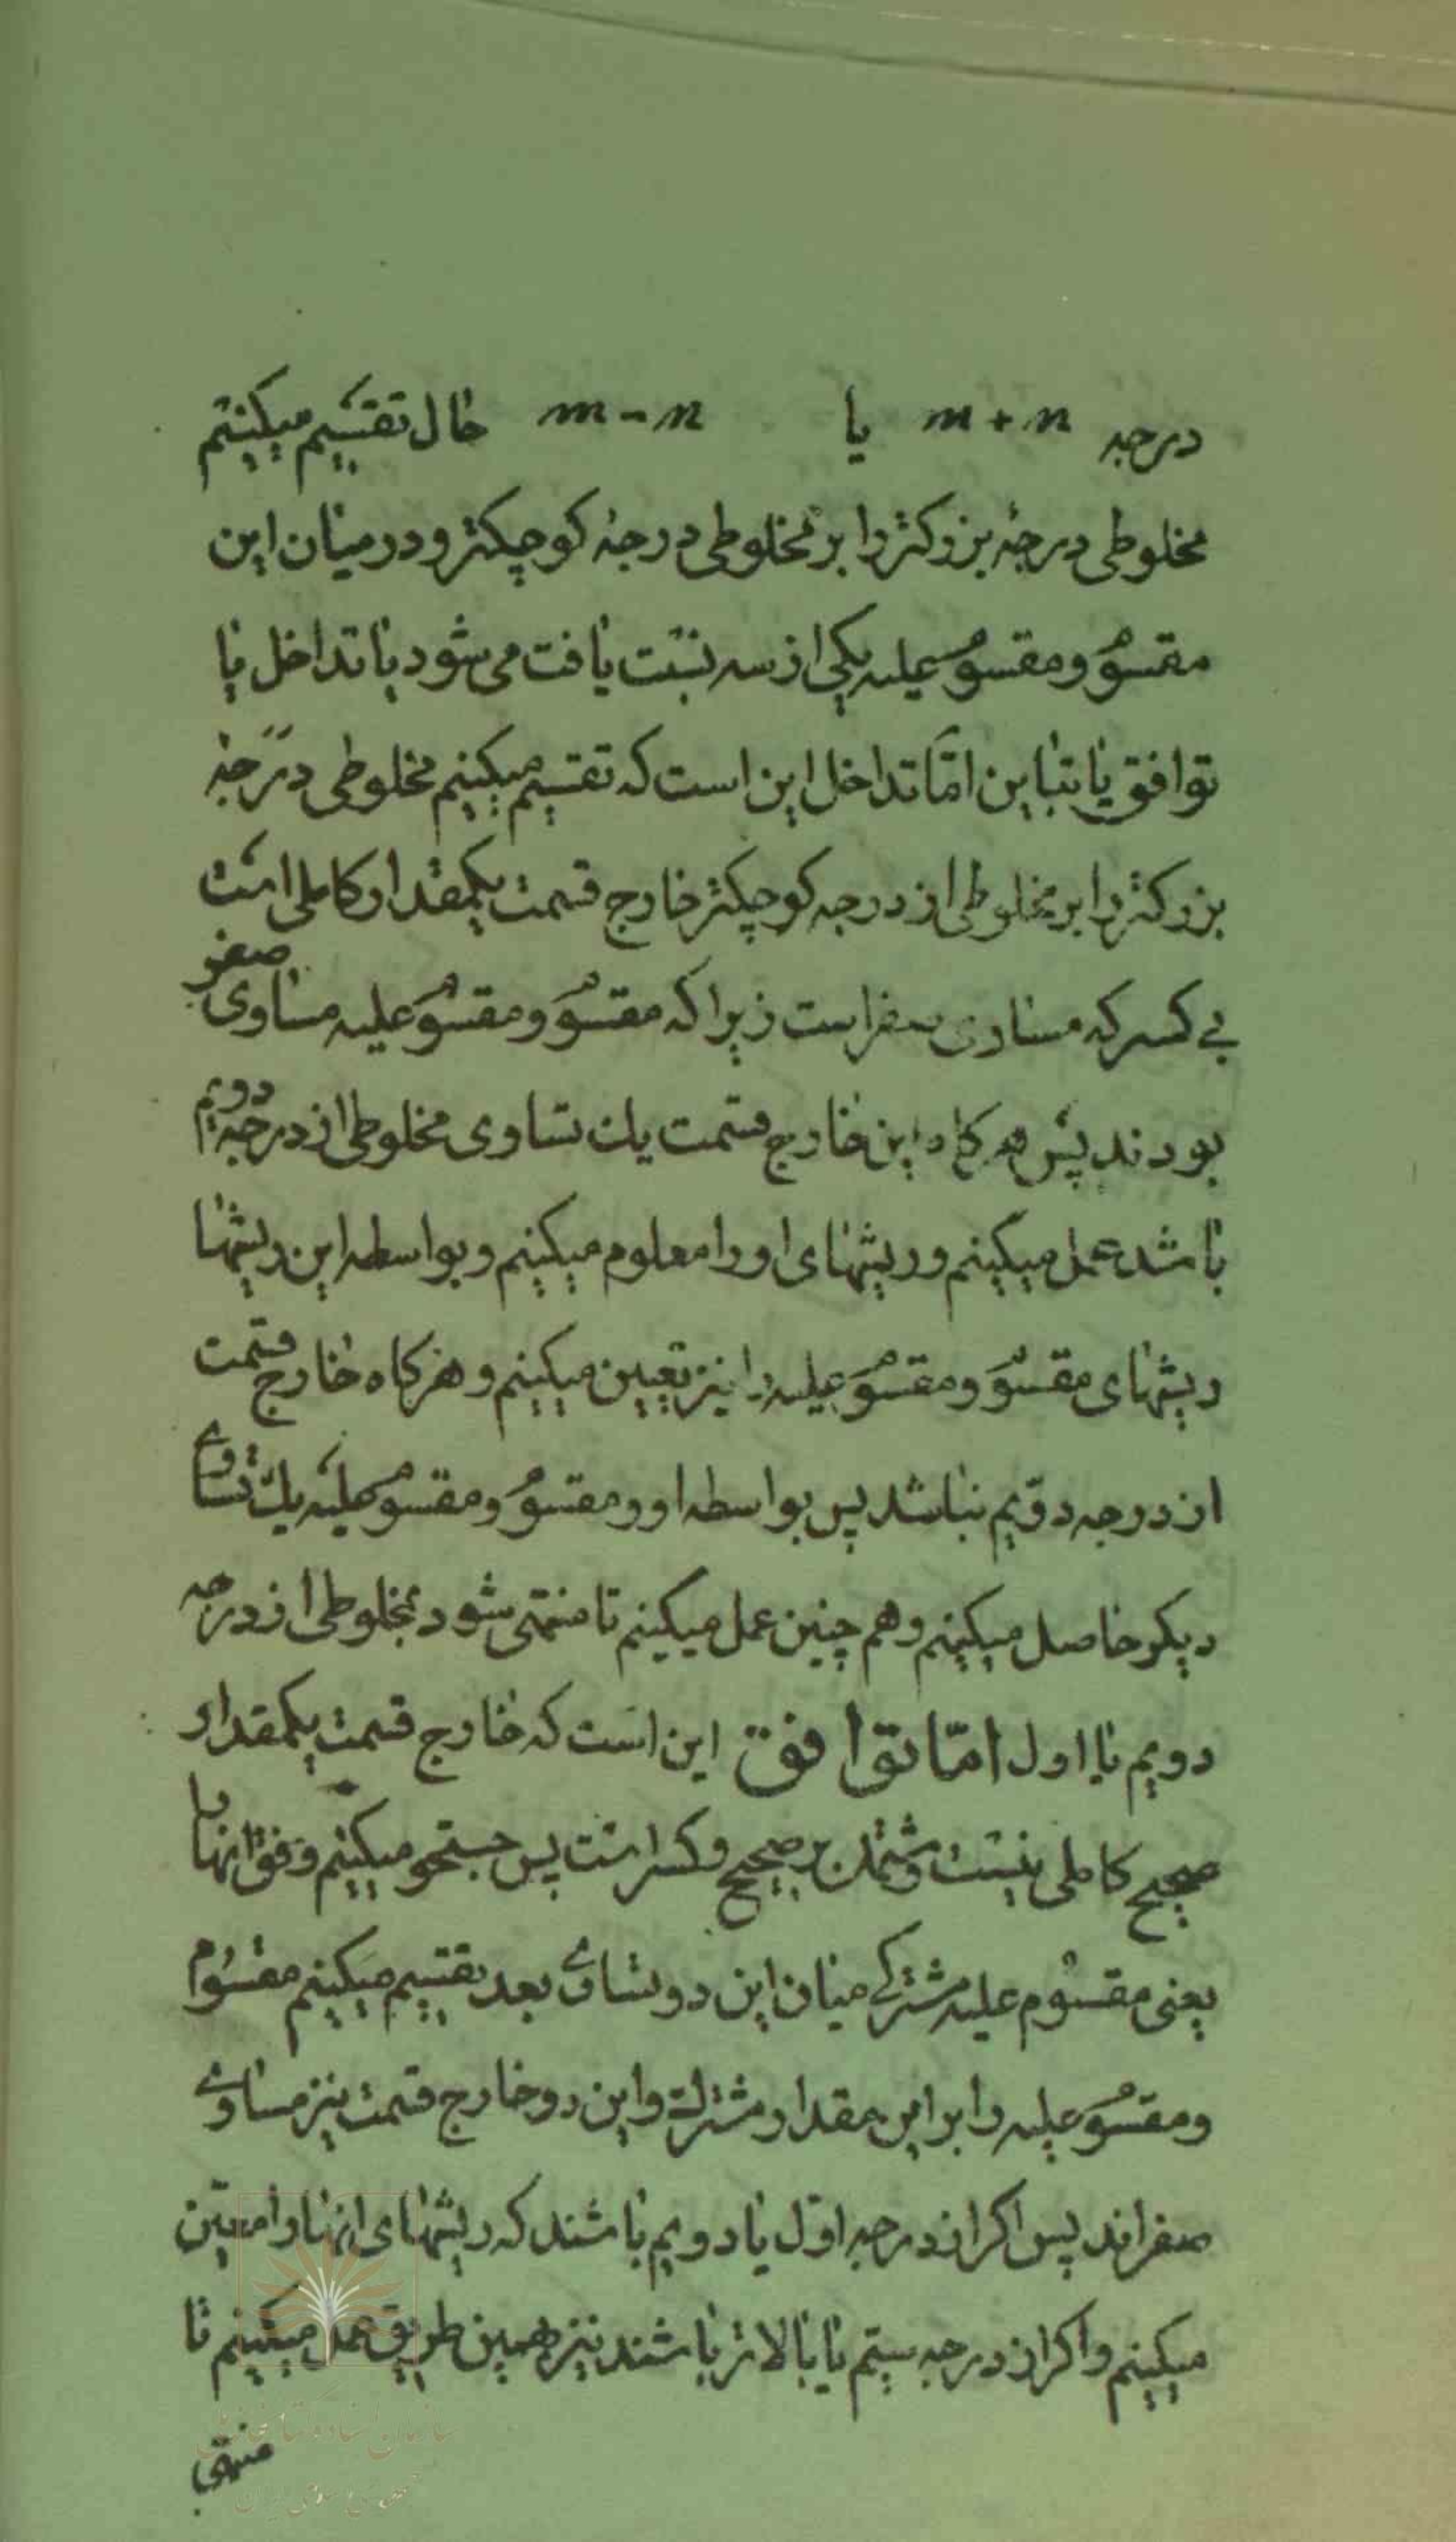 درجه m + n یا m - n حال تقسیم میکنیم
مخلوطی درجهٔ بزرکتر را بر مخلوطی درجهٔ کوچکتر و در میان این
مقسوم و مقسوم علیه یکی از سه نسبت یافت می شود یا تداخل یا
توافق یا تباین امّا تداخل این است که تقسیم میکنیم مخلوطی درجهٔ
بزرکتر را بر مخلوطی از درجه کوچکتر خارج قسمت یکمقدار کاملی است
بی کسر که مساوی صفر است زیرا که مقسوم و مقسوم علیه مساوی صفر
بودند پس هر کاه این خارج قسمت یک تساوی مخلوطی از درجه دویم
باشد عمل میکنیم و ریشهای او را معلوم میکنیم و بواسطه این ریشها
ریشهای مقسوم و مقسوم علیه را نیز تعیین میکنیم و هر کاه خارج قسمت
از درجه دویم نباشد پس بواسطه او و مقسوم و مقسوم علیه یک تساوی
دیکر حاصل میکنیم و هم چنین عمل میکنیم تا منتهی شود بمخلوطی از درجه
دویم یا اول امّا توافق این است که خارج قسمت یکمقدار
صحیح کاملی نیست و مشتمل بر صحیح و کسر است پس جستجو میکنیم وفق انها را
یعنی مقسوم علیه مشترکی میان این دو تساوی بعد تقسیم میکنیم مقسوم
و مقسوم علیه را بر این مقدار مشترک و این دو خارج قسمت نیز مساوی
صفر اند پس اکر از درجه اوّل یا دویم باشند که ریشهای انها را معیّن
میکنیم و اکر از درجه سیّم یا بالاتر باشند نیز بهمین طریق عمل میکنیم تا
منتهی
سازمان اسناد و کتابخانه ملی
جمهوری اسلامی ایران